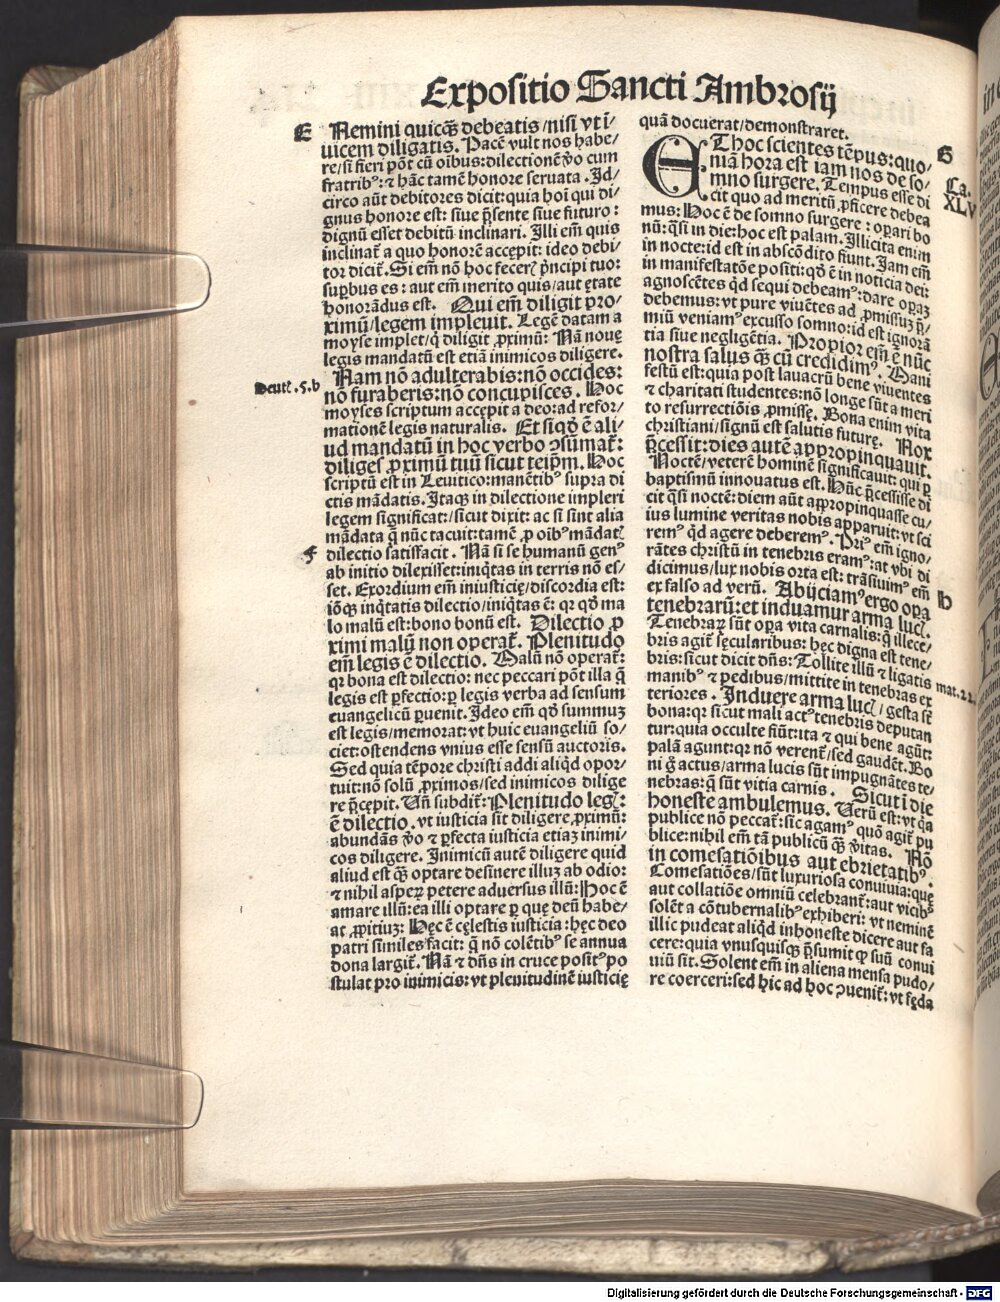 Expositio Sancti Ambrosij
E Nemini quicq̃ debeatis/nisi vt ī/
uicem diligatis. Pacē vult nos habe/
re/si fieri põt cũ oībus:dilectionē v̊o cum
fratrib⁹:⁊ hãc tamē honore seruata. Id/
circo aũt debitores dicit:quia hoi qui di/
gnus honore est: siue p̃sente siue futuro:
dignũ esset debitũ inclinari. Illi em̃ quis
inclinat̃ a quo honorē accepit: ideo debi/
tor dicit̃. Si em̃ nõ hoc fecer̃ p̃ncipi tuo:
supbus es: aut em̃ merito quis/aut ętate
honorãdus est. Qui em̃ diligit pro/
ximũ/legem impleuit. Legē datam a
moyse implet/q̃ diligit ꝓximũ: Nã nouę
legis mandatũ est etiã inimicos diligere.
Deut̃.5.b Nam nõ adulterabis:nõ occides:
nõ furaberis:nõ concupisces. Hoc
moyses scriptum accepit a deo:ad refor/
mationē legis naturalis. Et siqd̊ ē ali/
ud mandatũ in hoc verbo ꝯsũmat̃:
diliges ꝓximũ tuũ sicut teip̃m. Hoc
scriptũ est in Leuitico:manētib⁹ supra di
ctis mãdatis. Itaqꝫ in dilectione impleri
legem significat:/sicut dixit: ac si sint alia
mãdata q̃ nũc tacuit:tamē ꝓ oib⁹ mãdat̃
F dilectio satisfacit. Nã si se humanũ gen⁹
ab initio dilexisset:iniq̃tas in terris nõ es/
set. Exordium em̃ iniusticię/discordia est:
iõqꝫ inq̃tatis dilectio/iniq̃tas ē: qꝛ qd̊ ma
lo malũ est:bono bonũ est. Dilectio ꝓ
ximi malũ non operat̃. Plenitudo
em̃ legis ē dilectio. Malũ nõ operat̃:
qꝛ bona est dilectio: nec peccari põt illa q̃
legis est ꝑfectio:ꝑ legis verba ad sensum
euangelicũ ꝑuenit. Ideo em̃ qd̊ summuꝫ
est legis/memorat:vt huic euangeliũ so/
ciet:ostendens vnius esse sensũ auctoris.
Sed quia tēpore christi addi aliqd̃ opor/
tuit:nõ solũ ꝓximos/sed inimicos dilige
re p̃cepit. Vñ subdit̃: Plenitudo leg̃:
ē dilectio. vt iusticia sit diligere ꝓximũ:
abundãs v̊o ⁊ ꝑfecta iusticia etiaꝫ inimi
cos diligere. Inimicũ autē diligere quid
aliud est q̃ optare desinere illuꝫ ab odio:
⁊ nihil asperꝫ petere aduersus illũ: Hoc ē
amare illũ:ea illi optare ꝑ quę deũ habe/
at ꝓpitiuꝫ: Hęc ē cęlestis iusticia: hęc deo
patri similes facit: q̃ nõ colētib⁹ se annua
dona largit̃. Nã ⁊ dñs in cruce posit⁹ po
stulat pro inimicis: vt plenitudinē iusticię
quã docuerat/demonstraret.
G ET hoc scientes tēpus:quo/
niã hora est iam nos de so/
Ca. XLV mno surgere. Tempus esse di
cit quo ad meritũ ꝓficere debea
mus: Hoc ē de somno surgere: oꝑari bo
nũ: q̃si in die:hoc est palam. Illicita enim
in nocte:id est in abscõdito fiunt. Iam em̃
in manifestatõe positi: qd̊ ē in noticia dei:
agnoscētes q̃d sequi debeam⁹:dare oꝑaꝫ
debemus: vt pure viuētes ad ꝓmissuꝫ p̃/
miũ veniam⁹ excusso somno:id est ignorã
tia siue negligētia. Propior em̃ ē nũc
nostra salus q̃ cũ credidim⁹. Mani
festũ est:quia post lauacrũ bene viuentes
⁊ charitati studentes:nõ longe sũt a meri
to resurrectiõis ꝓmissę. Bona enim vita
christiani/signũ est salutis futurę. Nox
p̃cessit: dies autē appropinquauit.
Noctē/veterē hominē significauit: qui ꝑ
baptismũ innouatus est. Hũc p̃cessisse di
cit q̃si noctē: diem aũt appropinquasse cu/
ius lumine veritas nobis apparuit: vt sci
rem⁹ q̃d agere deberem⁹. Pri⁹ em̃ igno/
rãtes christũ in tenebris eram⁹:at vbi di
dicimus/lux nobis orta est: trãsiuim⁹ em̃
ex falso ad verũ. Abijciam⁹ ergo oꝑa
H tenebrarũ: et induamur arma luc̃.
Tenebraꝝ sũt oꝑa vita carnalis: q̃ illece/
bris agit̃ sęcularibus: hęc digna est tene/
bris:sicut dicit dñs: Tollite illũ ⁊ ligatis
manib⁹ ⁊ pedibus/mittite in tenebras ex mat.22.
teriores. Induere arma luc̃/ gesta s̃t
bona: qꝛ sicut mali act⁹ tenebris deputan
tur: quia occulte fiũt: ita ⁊ qui bene agũt:
palã agunt: qꝛ nõ verent̃/sed gaudēt. Bo
ni g̊ actus/arma lucis sũt impugnãtes te/
nebras: q̃ sũt vitia carnis. Sicut ī die
honeste ambulemus. Verũ est: vt q̃a
publice nõ peccat̃: sic agam⁹ quõ agit̃ pu
blice:nihil em̃ tã publicũ q̃ v̊itas. Nõ
in comesatiõibus aut ebrietatib⁹.
Comesatiões/sũt luxuriosa conuiuia: quę
aut collatiõe omniũ celebrant̃: aut vicib⁹
solēt a cõtubernalib⁹ exhiberi: vt neminē
illic pudeat aliqd̃ inhoneste dicere aut fa
cere:quia vnusquisqꝫ p̃sumit ꝙ suũ conui
uiũ sit. Solent em̃ in aliena mensa pudo/
re coerceri:sed hic ad hoc ꝯuenit̃: vt fęda
Digitalisierung gefördert durch die Deutsche Forschungsgemeinschaft - DFG